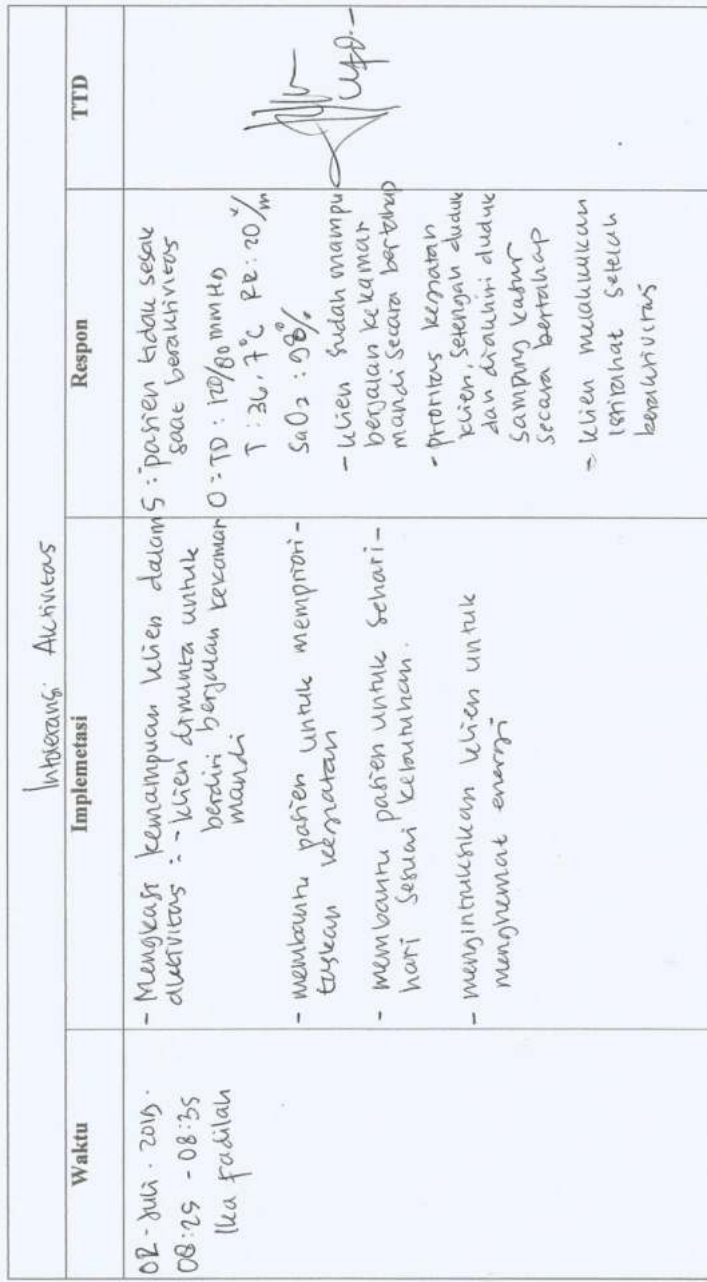 Intoleransi Aktivitas
Waktu
Implemetasi
Respon
TTD
02 - Juli - 2019.
08:25 - 08:35
Ika Fadilah
- Mengkaji kemampuan klien dalam
aktivitas : - klien diminta untuk
berdiri berjalan kekamar
mandi
- membantu pasien untuk mempriori-
taskan kegiatan
- membantu pasien untuk sehari-
hari sesuai kebutuhan.
- mengintruksikan klien untuk
menghemat energi
S : pasien tidak sesak
saat beraktivitas
O : TD : 120/80 mmHg
T : 36,7°C RR : 20x/m
SaO2 : 98%
- klien sudah mampu
berjalan kekamar
mandi secara bertahap
- prioritas kegiatan
klien, setengah duduk
dan diakhiri duduk
samping kasur
secara bertahap
- klien melakukan
istirahat setelah
beraktivitas